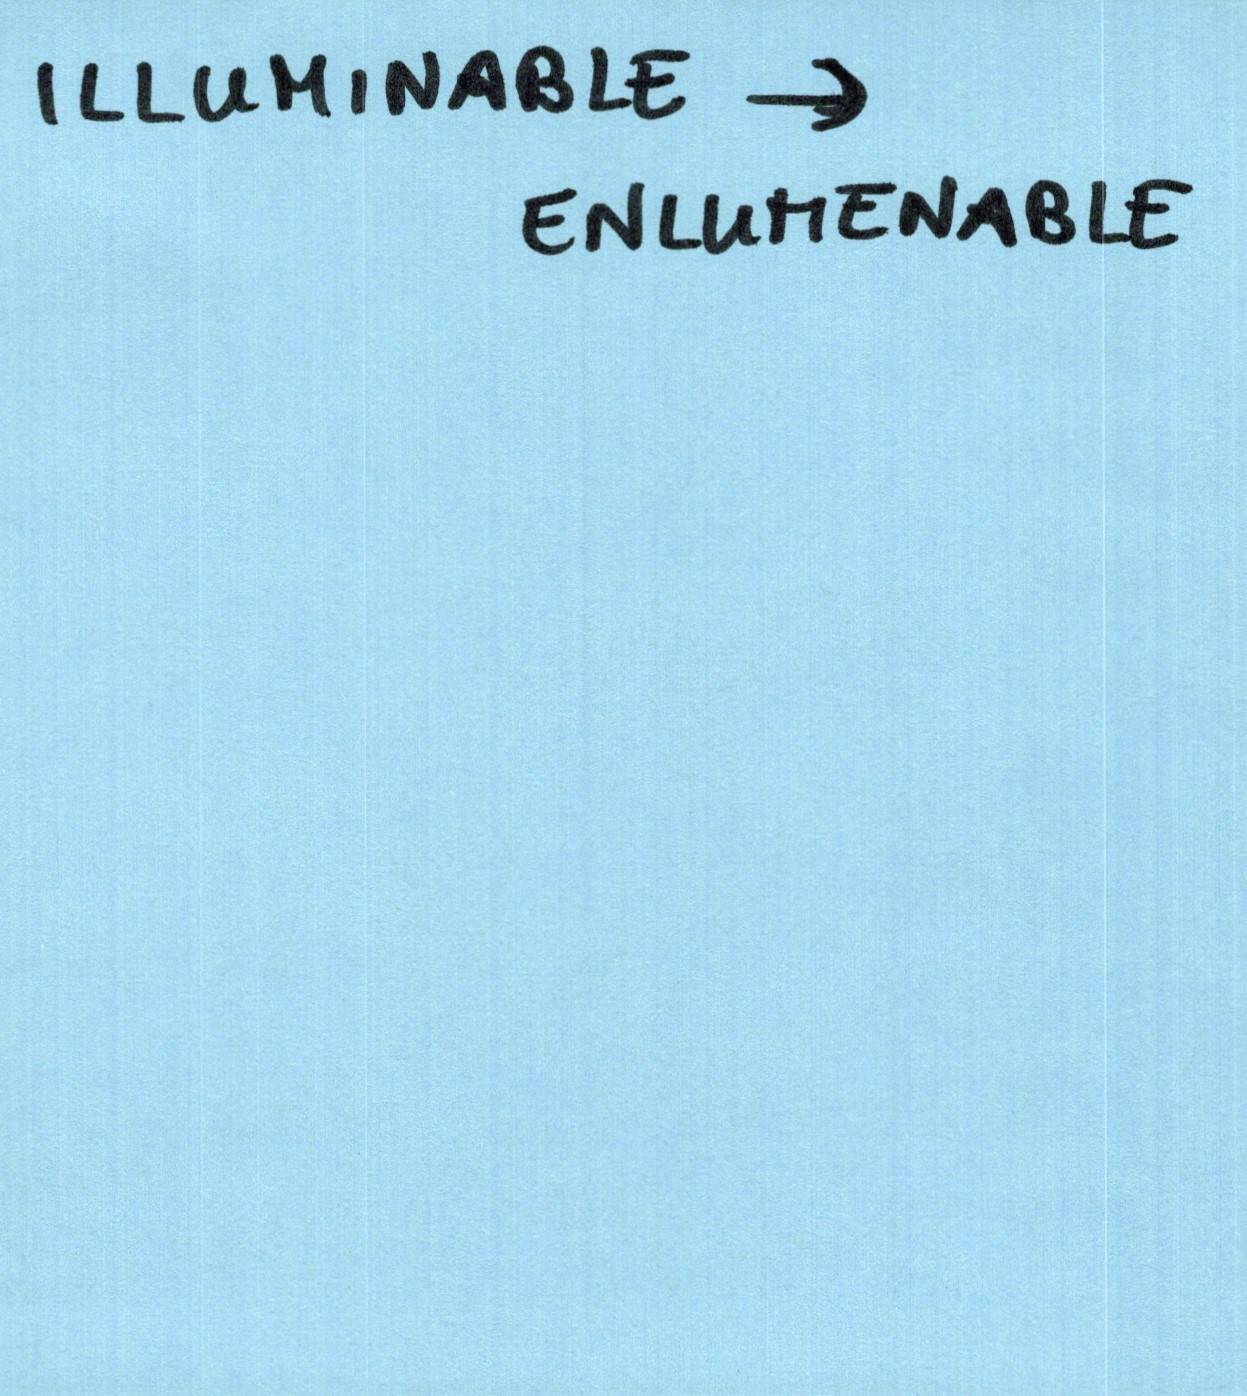 ILLUMINABLE →
ENLUMENABLE